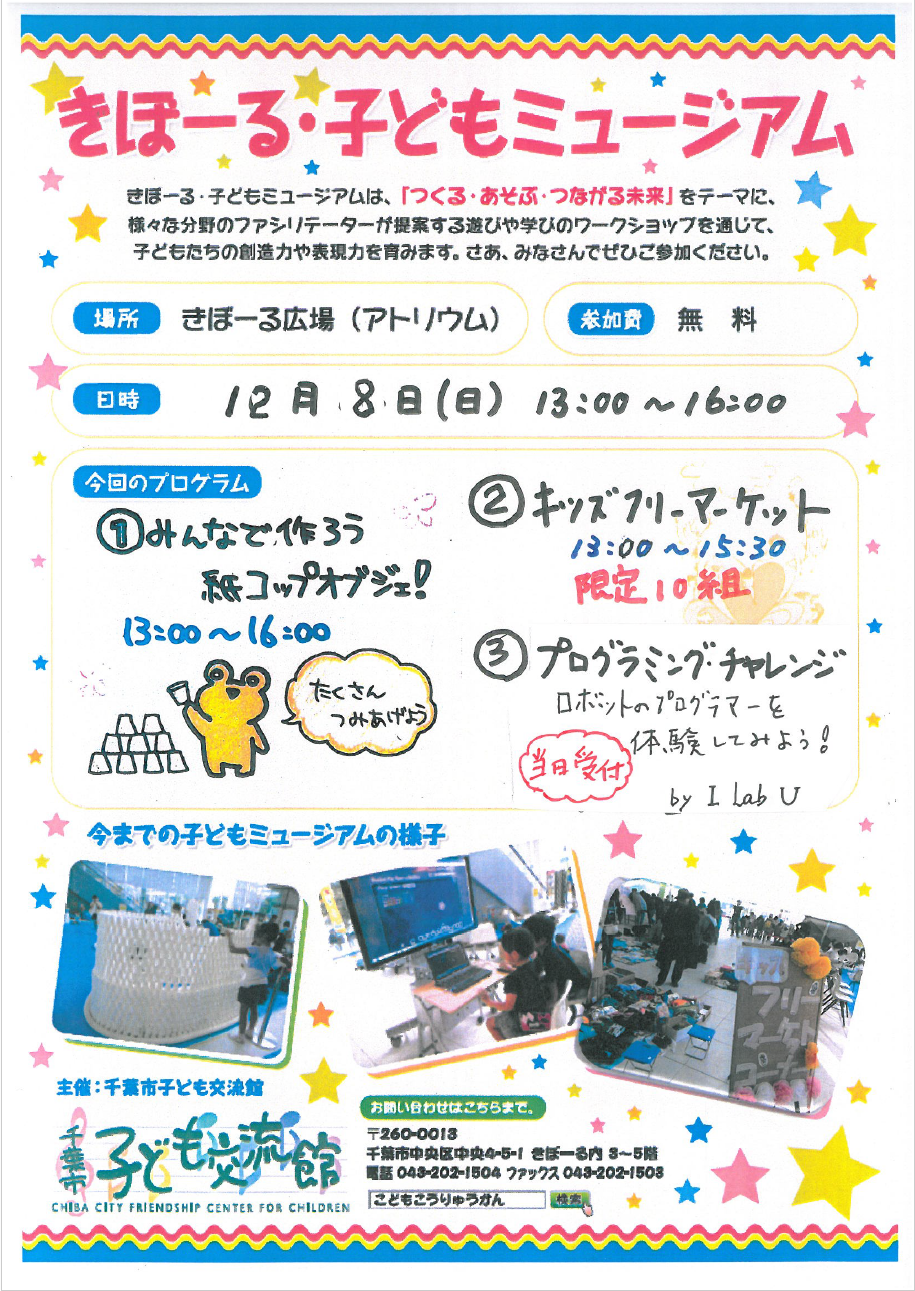 きぼーる・子どもミュージアム
きぼーる・子どもミュージアムは、「つくる・あそぶ・つながる未来」をテーマに、
様々な分野のファシリテーターが提案する遊びや学びのワークショップを通じて、
子どもたちの創造力や表現力を育みます。さあ、みなさんでぜひご参加ください。
場所 きぼーる広場（アトリウム）
参加費 無 料
日時 12月8日(日) 13:00～16:00
今回のプログラム
①みんなで作ろう
紙コップオブジェ!
13:00～16:00
たくさん
つみあげよう
②キッズフリーマーケット
13:00～15:30
限定10組
③プログラミング・チャレンジ
ロボットのプログラマーを
体験してみよう!
当日受付
by I Lab U
今までの子どもミュージアムの様子
キッズ
フリー
マーケット
コーナー
主催：千葉市子ども交流館
千葉市 子ども交流館
CHIBA CITY FRIENDSHIP CENTER FOR CHILDREN
お問い合わせはこちらまで。
〒260-0013
千葉市中央区中央4-5-1 きぼーる内 3～5階
電話 043-202-1504 ファックス 043-202-1503
こどもこうりゅうかん 検索